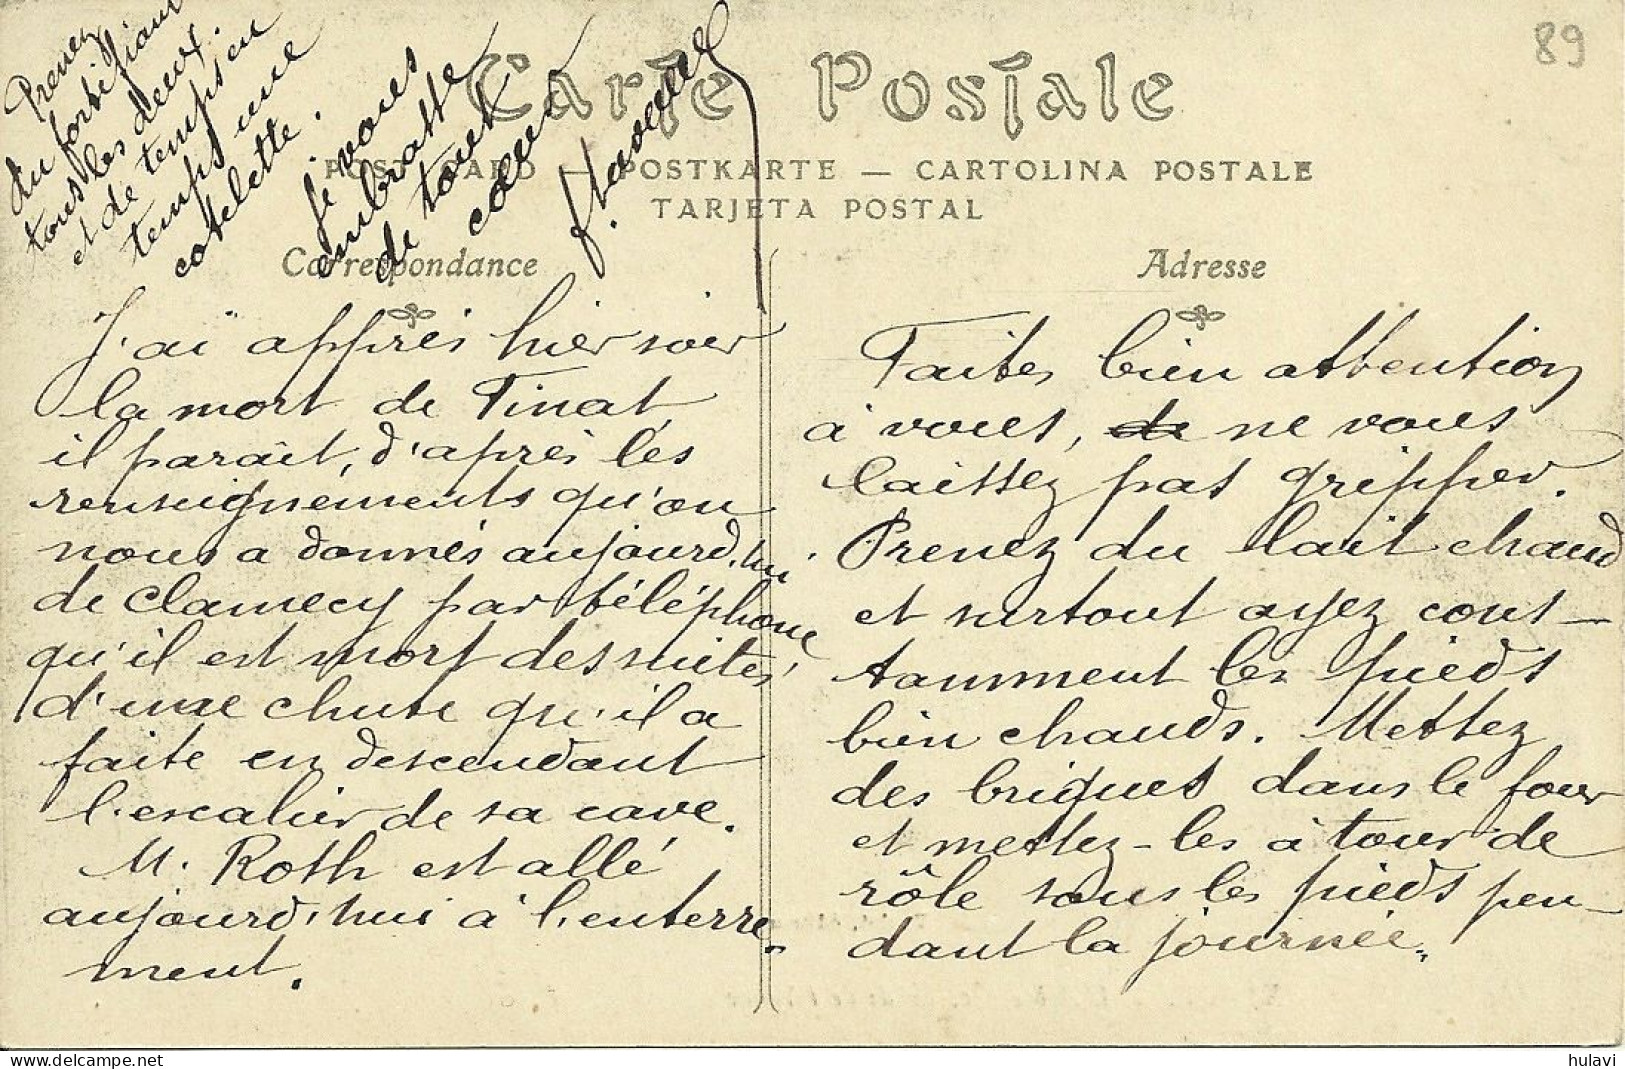 Carte Postale
89
POST CARD — POSTKARTE — CARTOLINA POSTALE
TARJETA POSTAL
Correspondance
Adresse
J'ai appris hier soir
la mort de Tinat,
il parait, d'après les
renseignements qu'on
nous a donnés aujourd'hui
de Clamecy par téléphone
qu'il est mort des suites
d'une chute qu'il a
faite en descendant
l'escalier de sa cave.
M. Roth est allé
aujourd'hui à l'enterre-
ment.
Faites bien attention
à vous, de ne vous
laissez pas gripper.
Prenez du lait chaud
et surtout ayez cons-
tamment les pieds
bien chauds. Mettez
des briques dans le four
et mettez-les à tour de
rôle sous les pieds pen-
dant la journée.
Prenez
du fortifiant
tous les deux.
et de temps en
temps une
cotelette.
je vous
embrasse
de tout
cœur
hulavi